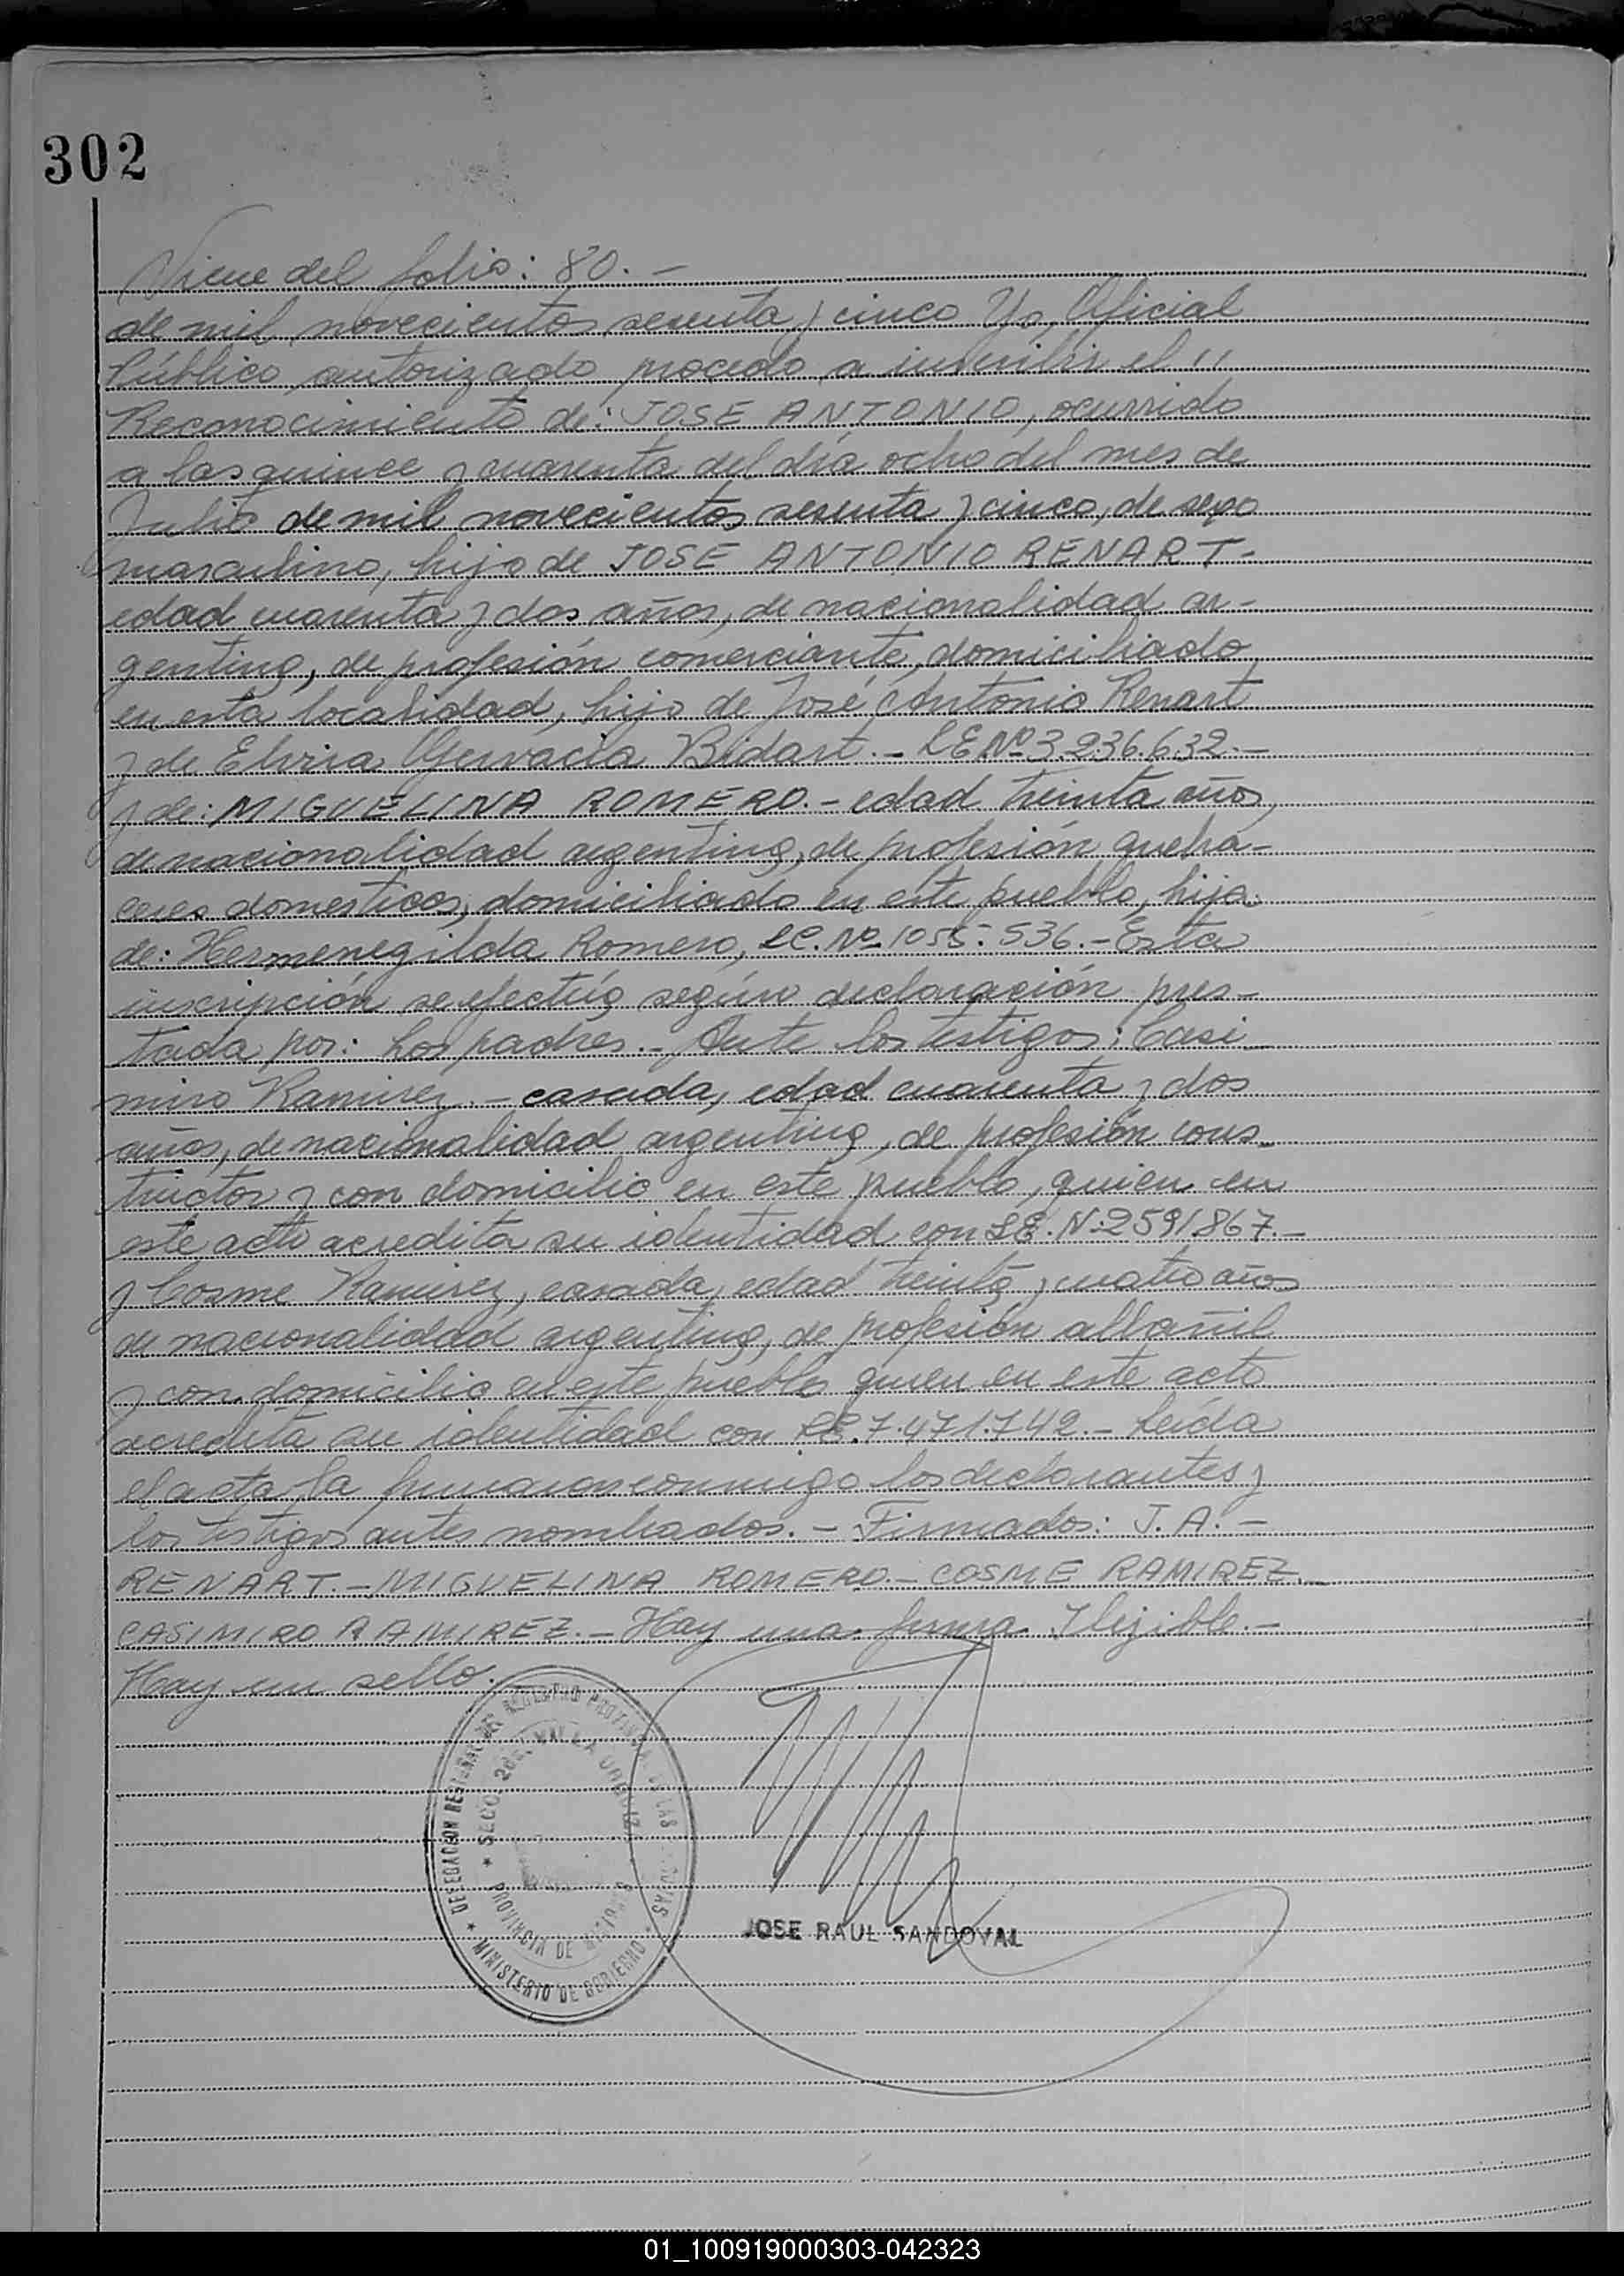 302
Viene del folio: 80.-
de mil novecientos sesenta y cinco Yo, Oficial
Público autorizado procedo a inscribir el "
Reconocimiento de: JOSE ANTONIO, ocurrido
a las quince y cuarenta del día ocho del mes de
Julio de mil novecientos sesenta y cinco, de sexo
masculino, hijo de JOSE ANTONIO RENART-
edad cuarenta y dos años, de nacionalidad ar-
gentina, de profesión comerciante, domiciliado
en esta localidad, hijo de José Antonio Renart
y de Elvira Gervacia Bidart.- LE Nº 3.236.632.-
y de: MIGUELINA ROMERO.- edad treinta años,
de nacionalidad argentina, de profesión queha-
ceres domesticos, domiciliado en este pueblo, hija
de: Hermenegilda Romero, LC. Nº 1055.536.- Esta
inscripción se efectúa según declaración pres-
tada por: Los padres.- Ante los testigos: Casi-
miro Ramirez.- casada, edad cuarenta y dos
años, de nacionalidad argentina, de profesión cons-
tructor y con domicilio en este pueblo, quien en
este acto acredita su identidad con LE. N: 2591867.-
y Cosme Ramirez, casada, edad treinta y cuatro años
de nacionalidad argentina, de profesión albañil
y con domicilio en este pueblo quien en este acto
acredita su identidad con LE. 7.471.742.- Leída
el acta la firmaron conmigo los declarantes y
los testigos antes nombrados.- Firmados: J.A.-
RENART.- MIGUELINA ROMERO.- COSME RAMIREZ.-
CASIMIRO RAMIREZ.- Hay una firma Ilegible.-
Hay un sello.
DELEGACION REGISTRO DE LAS
SECC. 2da. VILLA
PROVINCIA DE MISIONES
MINISTERIO DE GOBIERNO
JOSE RAUL SANDOVAL
01_100919000303-042323